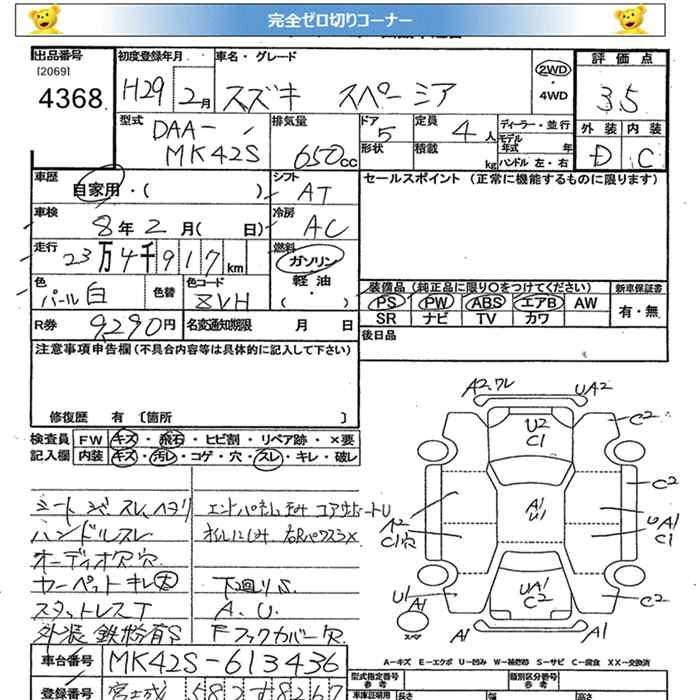 完全ゼロ切りコーナー
出品番号 初度登録年月 車名・グレード 評価点
[2069]
4368 H29 2月 スズキ スペーシア 2WD・4WD 3.5
型式 排気量 ドア 定員 ディーラー・並行 外装 内装
DAA- 5 4人 モデル年式 年 D C
MK42S 650cc 形状 積載 kg ハンドル 左・右
車歴 シフト セールスポイント (正常に機能するものに限ります)
自家用・( ) AT
車検 冷房
8年2月( 日) AC
走行 燃料
23万4千917km ガソリン
軽油
・( )
色 色替 色コード 装備品 (純正品に限り○をつけてください) 新車保証書
パール白 ZVH PS PW ABS エアB AW 有・無
SR ナビ TV カワ
R券 9,290円 名変通知期限 月 日 後日品
注意事項申告欄(不具合内容等は具体的に記入して下さい)
修復歴 有 〔箇所 〕
検査員 FW キズ・飛石・ヒビ割・リペア跡・×要
記入欄 内装 キズ・汚レ・コゲ・穴・スレ・キレ・破レ
ハンドルスレ
オーディオ欠穴
カーペットキレ大 下廻りS
スタットレスT A.U.
外装鉄粉有S Fフックカバー欠
車台番号 MK42S-613436
登録番号
A2.ワレ UA2
U2
C1
C2
C2
A2
C1穴
A1
U1
UA1
C1
UA1
C2
U1
A1
C2
A1
A1
A-キズ E-エクボ U-凹み W-補修跡 S-サビ C-腐食 XX-交換済
型式指定番号 類別区分番号
参考 参考
車庫証明用 長さ 幅 高さ